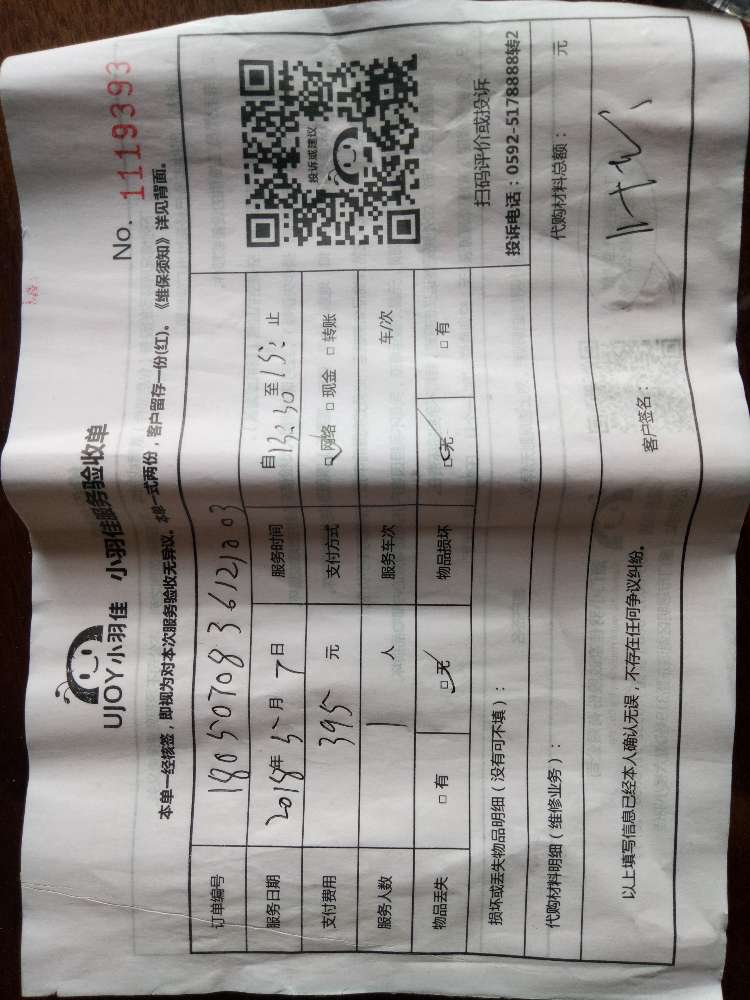 UJOY小羽佳 小羽佳服务验收单
No. 1119393
本单一经核签，即视为对本次服务验收无异议。本单一式两份，客户留存一份(红)。《维保须知》详见背面。
订单编号 1805070836121003
服务日期 2018年5月7日 服务时间 自13:30至15: 止
支付费用 395元 支付方式 □网络 □现金 □转账
服务人数 1人 服务车次 车/次
物品丢失 □有 □无 物品损坏 □无 □有
投诉或建议
扫码评价或投诉
投诉电话：0592-5178888转2
损坏或丢失物品明细（没有可不填）：
代购材料明细（维修业务）： 代购材料总额： 元
以上填写信息已经本人确认无误，不存在任何争议纠纷。
客户签名：